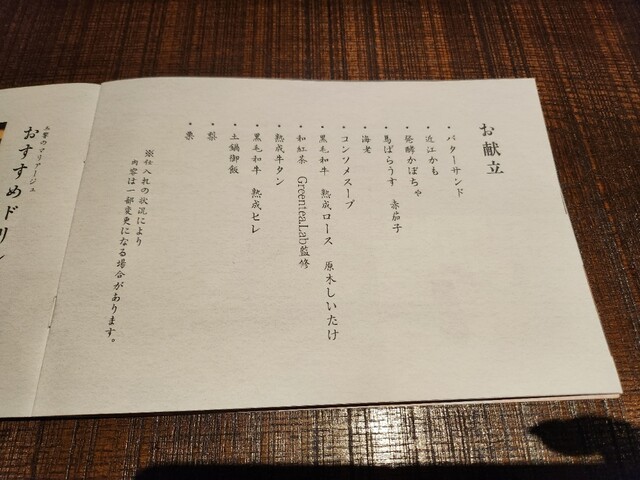 お献立
・バターサンド
・近江かも
・発酵かぼちゃ
・馬ばらうす 赤茄子
・海老
・コンソメスープ
・黒毛和牛 熟成ロース 原木しいたけ
・和紅茶 Greentea.Lab監修
・熟成牛タン
・黒毛和牛 熟成ヒレ
・土鍋御飯
・梨
・栗
※仕入れの状況により
内容は一部変更になる場合があります。
のマリアージュ
おすすめドリン